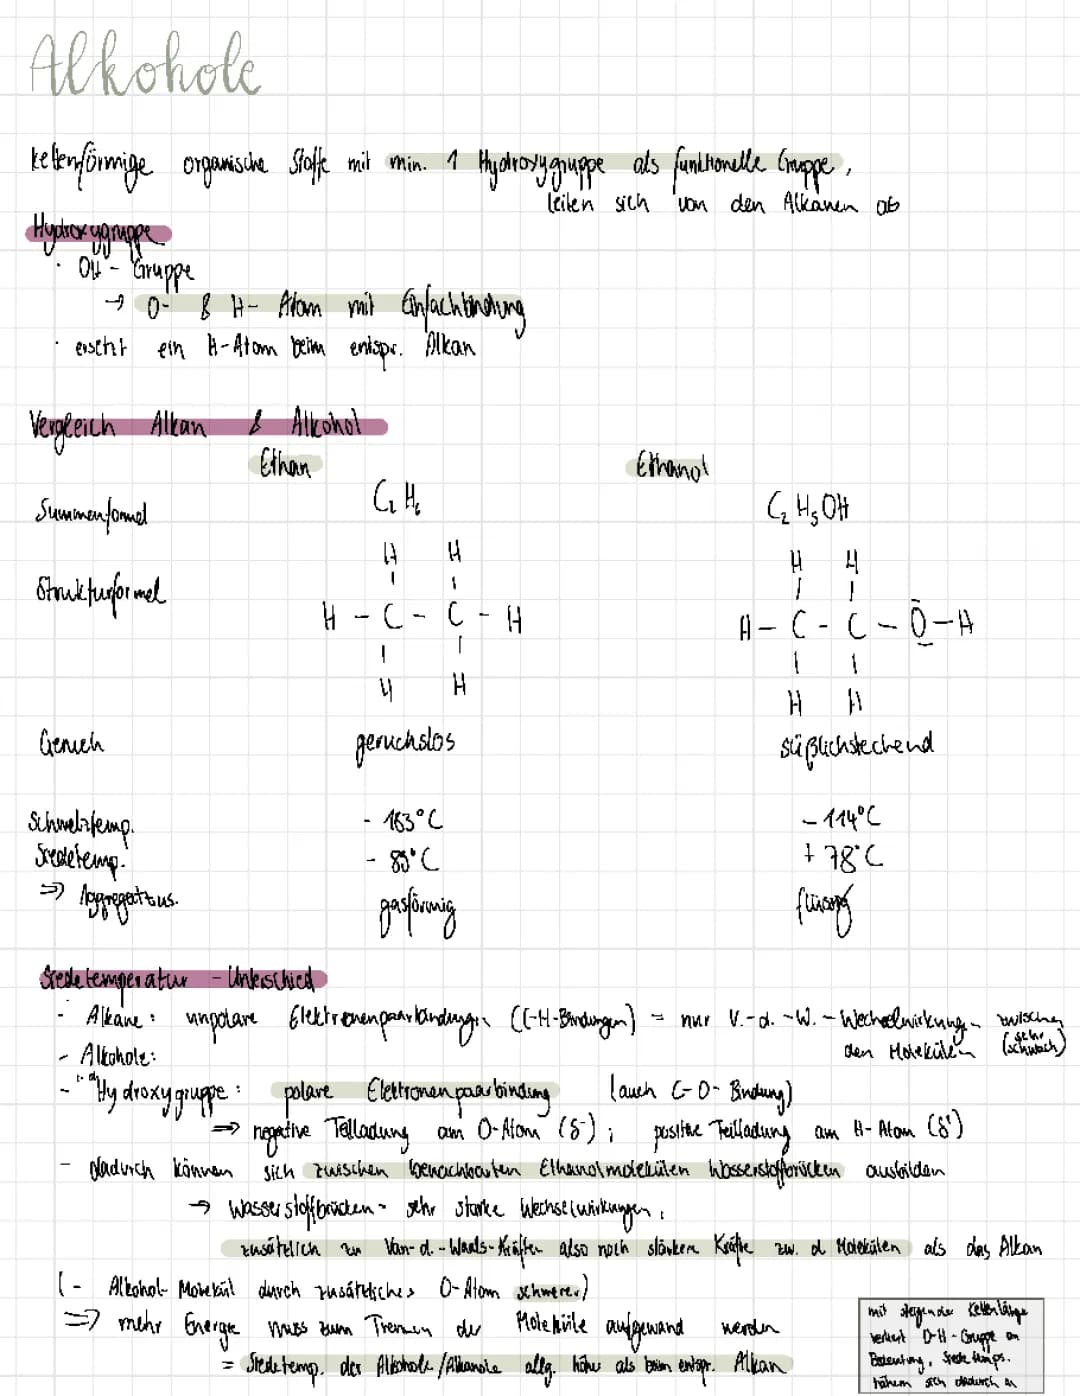 Alkohole
kettenförmige organische Stoffe mit min. 1 Hydroxygruppe als funktionelle Gruppe,
leiten sich von den Alkanen ab
Hydroxygruppe
· OH - Gruppe
→ O- & H- Atom mit Einfachbindung
· ersetzt ein H-Atom beim entspr. Alkan
Vergleich Alkan & Alkohol
Ethan Ethanol
Summenformel C₂H₆ C₂H₅OH
H H H H
Strukturformel
H - C - C - H H - C - C - O - H
H H H H
Geruch geruchslos süßlichstechend
Schmelztemp. - 183°C - 114°C
Siedetemp. - 89°C + 78°C
=> Aggregatzus. gasförmig flüssig
Siedetemperatur - Unterschied
- Alkane: unpolare Elektronenpaarbindungen (C-H-Bindungen) = nur V.-d.-W.-Wechselwirkungen zwischen
den Molekülen (sehr schwach)
- Alkohole:
- i. d. Hydroxygruppe: polare Elektronenpaarbindung (auch C-O-Bindung)
=> negative Teilladung am O-Atom (δ⁻); positive Teilladung am H-Atom (δ⁺)
- dadurch können sich zwischen benachbarten Ethanolmolekülen Wasserstoffbrücken ausbilden
→ Wasserstoffbrücken = sehr starke Wechselwirkungen,
zusätzlich zu Van-d.-Waals-Kräften also noch stärkere Kräfte zw. d Molekülen als das Alkan
(- Alkohol-Molekül durch zusätzliches O-Atom schwerer)
=> mehr Energie muss zum Trennen der Moleküle aufgewand werden
= Siedetemp. der Alkohole/Alkanole allg. höher als beim entspr. Alkan
mit steigender Kettenlänge
verliert O-H-Gruppe an
Bedeutung, Siedetemps.
nähern sich dadurch an